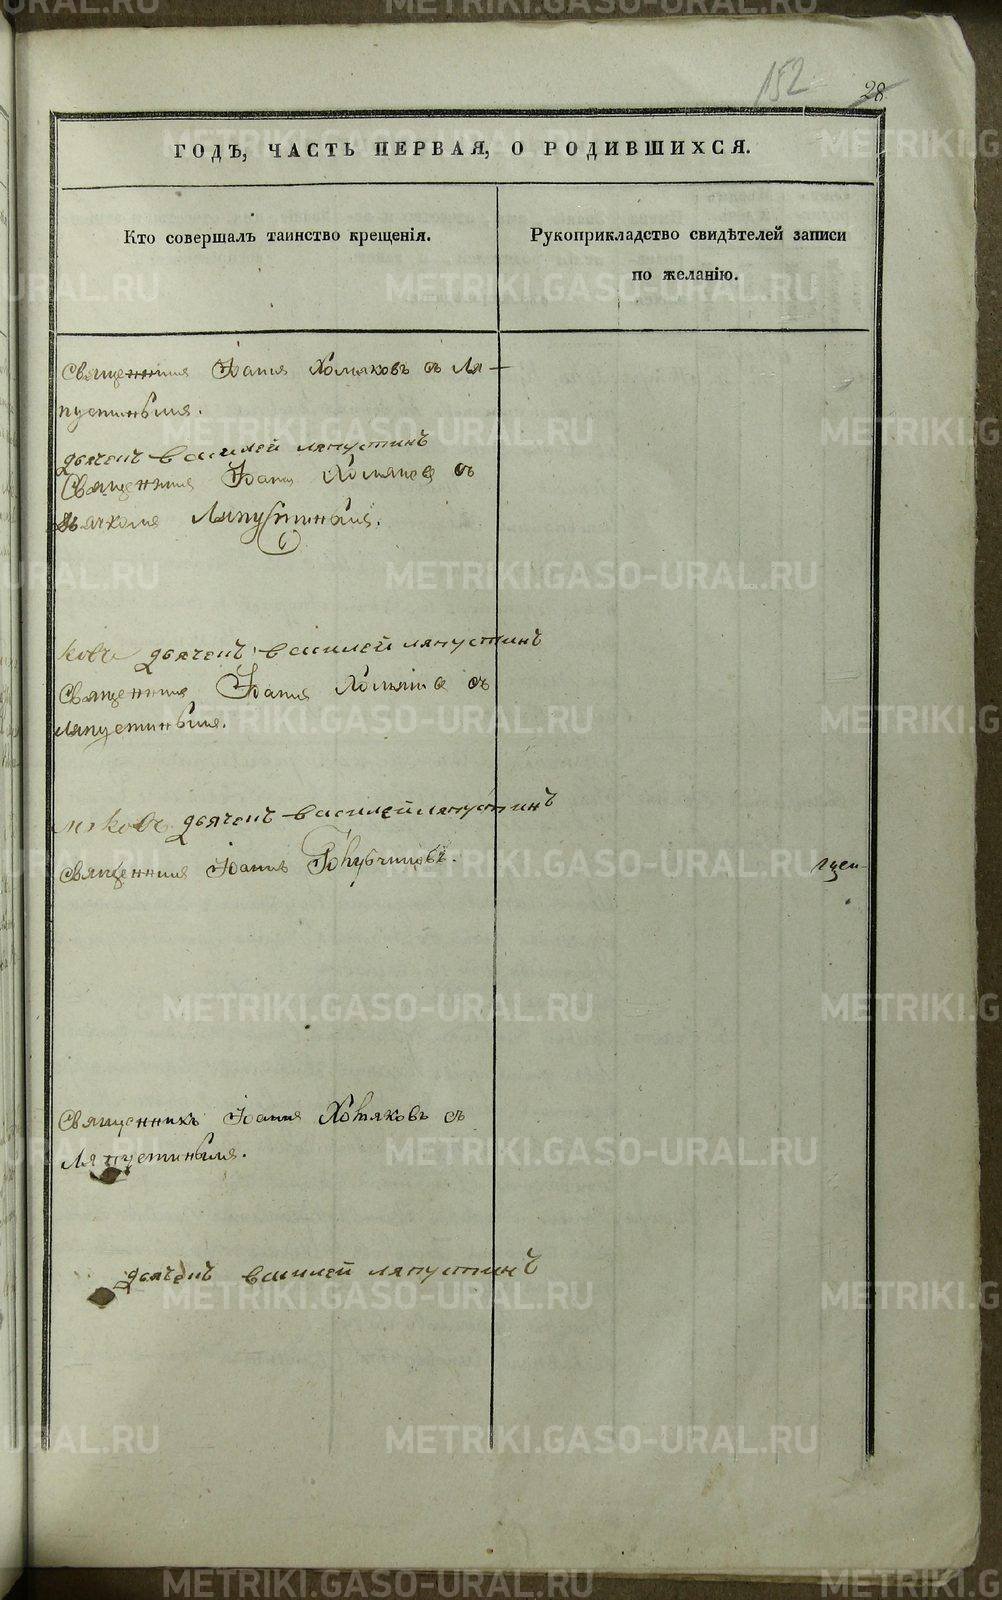 152
28
ГОДЪ, ЧАСТЬ ПЕРВАЯ, О РОДИВШИХСЯ.
Кто совершалъ таинство крещенія.
Рукоприкладство свидѣтелей записи
по желанію.
Священникъ Іоаннъ Хомяковъ съ Ля-
пустинымъ.
дьячекъ василей ляпустинъ
Священникъ Іоаннъ Хомяков съ
дьячкомъ Ляпустинымъ.
ковъ дьячекъ василей ляпустинъ
Священникъ Іоаннъ Хомяков съ
Ляпустинымъ.
дьячекъ василей ляпустинъ
Священникъ Іоаннъ
Священникъ Іоаннъ Хомяковъ съ
Ляпустинымъ.
дьячекъ василей ляпустинъ
METRIKI.GASO-URAL.RU